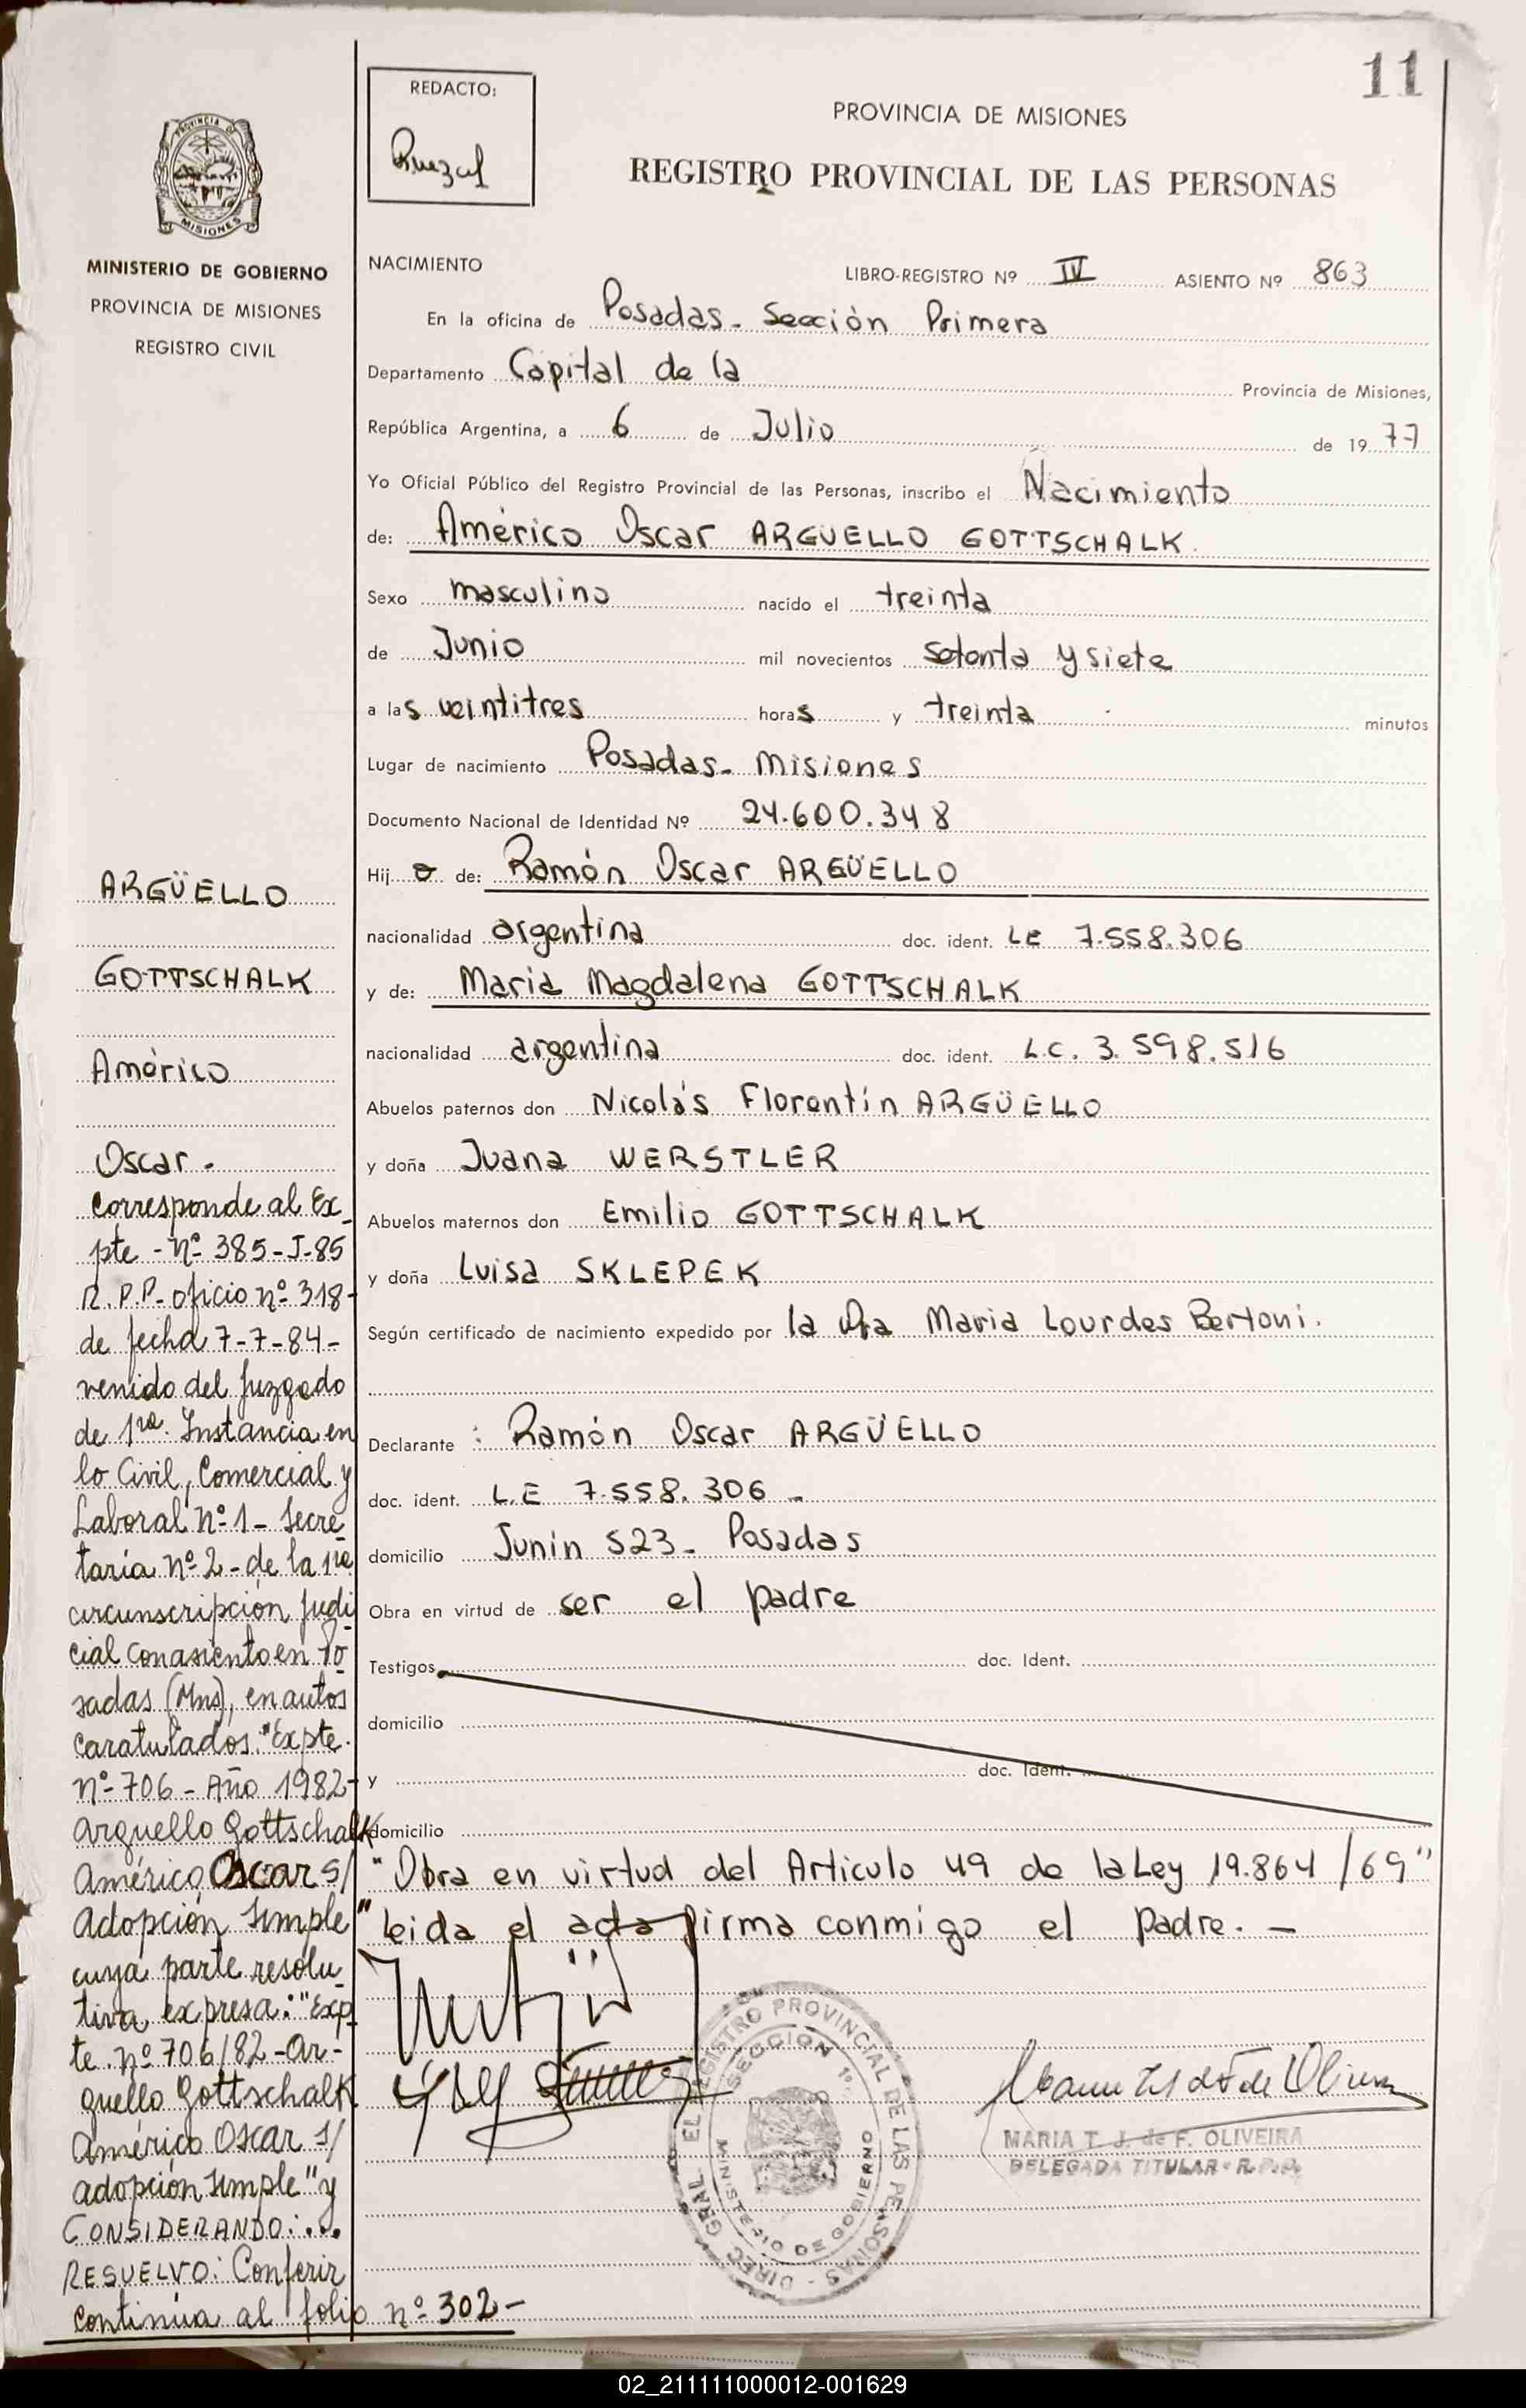 11
REDACTO:
PROVINCIA DE MISIONES
REGISTRO PROVINCIAL DE LAS PERSONAS
PROVINCIA DE
MISIONES
MINISTERIO DE GOBIERNO
PROVINCIA DE MISIONES
REGISTRO CIVIL
NACIMIENTO
LIBRO-REGISTRO Nº IV ASIENTO Nº 863
En la oficina de Posadas - Sección Primera
Departamento Capital de la Provincia de Misiones,
República Argentina, a 6 de Julio de 1977
Yo Oficial Público del Registro Provincial de las Personas, inscribo el Nacimiento
de: Américo Oscar ARGUELLO GOTTSCHALK.
Sexo masculino nacido el treinta
de Junio mil novecientos setenta y siete
a las veintitres horas y treinta minutos
Lugar de nacimiento Posadas - Misiones
Documento Nacional de Identidad Nº 24.600.348
Hijo de: Ramón Oscar ARGÜELLO
nacionalidad argentina doc. ident. LE 7.558.306
y de: Maria Magdalena GOTTSCHALK
nacionalidad argentina doc. ident. L.C. 3.598.516
Abuelos paternos don Nicolás Florentín ARGÜELLO
y doña Juana WERSTLER
Abuelos maternos don Emilio GOTTSCHALK
y doña Luisa SKLEPEK
Según certificado de nacimiento expedido por la Dra Maria Lourdes Bertoni.
Declarante : Ramón Oscar ARGÜELLO
doc. ident. L.E 7.558.306 -
domicilio Junín 523 - Posadas
Obra en virtud de ser el padre
Testigos doc. Ident.
domicilio
y doc. Ident.
domicilio
"Obra en virtud del Articulo 49 de la Ley 19.864/69"
"leida el acta firma conmigo el padre. -
EL REGISTRO PROVINCIAL DE LAS PERSONAS - DIREC. GRAL.
SECCION 1º
MINISTERIO DE GOBIERNO
MARIA T. J. de F. OLIVEIRA
DELEGADA TITULAR - R.P.P.
ARGÜELLO
GOTTSCHALK
Américo
Oscar.
Corresponde al Ex-
pte - Nº 385-J-85
R.P.P. - oficio nº 318-
de fecha 7-7-84-
venido del Juzgado
de 1ra. Instancia en
lo Civil, Comercial y
Laboral Nº 1 - Secre-
taria Nº 2 - de la 1ra
circunscripción Judi-
cial con asiento en Po-
sadas (Mns), en autos
caratulados: "Expte.
Nº 706 - Año 1982-
Arguello Gottschalk
Américo Oscar s/
Adopción Simple
cuya parte resolu-
tiva expresa: "Exp-
te. nº 706/82 - Ar-
guello Gottschalk
Américo Oscar s/
adopción simple" y
CONSIDERANDO: ...
RESUELVO: Conferir
Continúa al folio nº 302 -
02_211111000012-001629